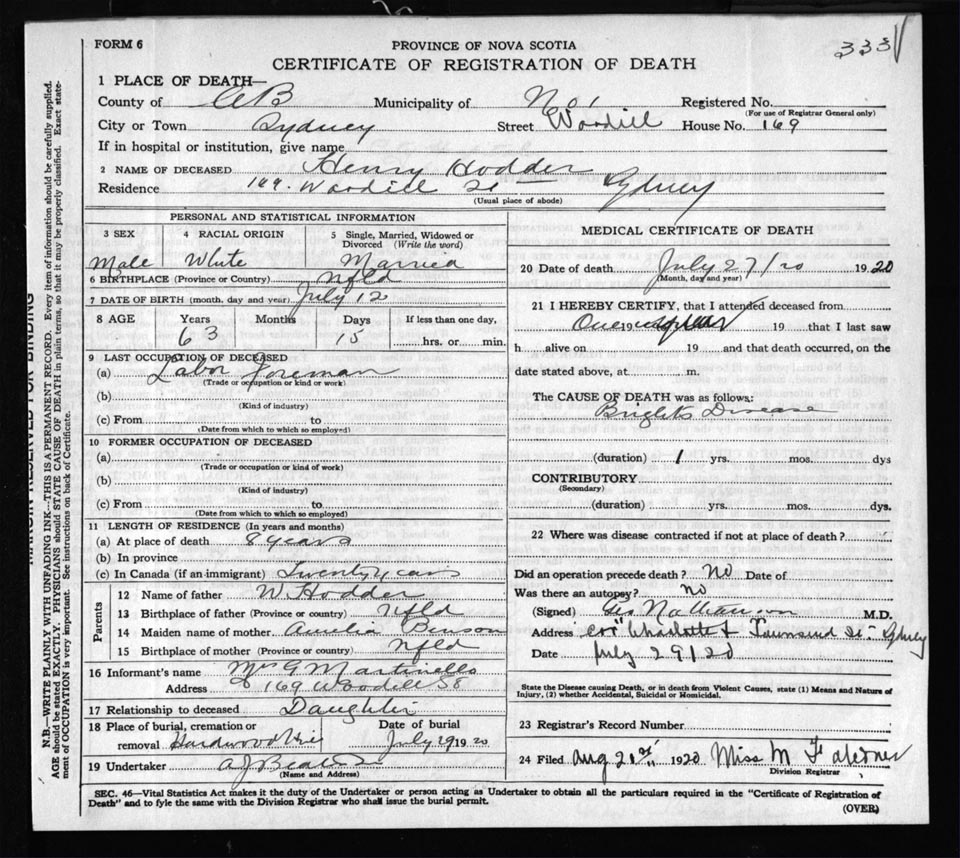 333
FORM 6
PROVINCE OF NOVA SCOTIA
CERTIFICATE OF REGISTRATION OF DEATH
1 PLACE OF DEATH—
County of CB Municipality of No. Registered No.
(For use of Registrar General only)
City or Town Sydney Street Woodill House No. 169
If in hospital or institution, give name
2 NAME OF DECEASED Henry Hodder
Residence 169. Woodill St Sydney
(Usual place of abode)
PERSONAL AND STATISTICAL INFORMATION
3 SEX 4 RACIAL ORIGIN 5 Single, Married, Widowed or Divorced (Write the word)
Male White Married
6 BIRTHPLACE (Province or Country) Nfld
7 DATE OF BIRTH (month, day and year) July 12
8 AGE Years Months Days If less than one day,
63 15 hrs. or min.
9 LAST OCCUPATION OF DECEASED
(a) Labor Foreman
(Trade or occupation or kind or work)
(b)
(Kind of industry)
(c) From to
(Date from which to which so employed)
10 FORMER OCCUPATION OF DECEASED
(a)
(Trade or occupation or kind of work)
(b)
(Kind of industry)
(c) From to
(Date from which to which so employed)
11 LENGTH OF RESIDENCE (In years and months)
(a) At place of death 8 years
(b) In province
(c) In Canada (if an immigrant) Twenty years
Parents
12 Name of father W. Hodder
13 Birthplace of father (Province or country) Nfld
14 Maiden name of mother Amelia Benson
15 Birthplace of mother (Province or country) Nfld
16 Informant's name Mrs G Martinello
Address 169 Woodill St
17 Relationship to deceased Daughter
18 Place of burial, cremation or Date of burial
removal Hardwood Hill July 29 1920
19 Undertaker
(Name and Address)
MEDICAL CERTIFICATE OF DEATH
20 Date of death July 27/20 1920
(Month, day and year)
21 I HEREBY CERTIFY, that I attended deceased from
Over 19 that I last saw
h alive on 19 and that death occurred, on the
date stated above, at m.
The CAUSE OF DEATH was as follows:
Brights Disease
(duration) 1 yrs. mos. dys
CONTRIBUTORY
(Secondary)
(duration) yrs. mos. dys.
22 Where was disease contracted if not at place of death?
Did an operation precede death? No Date of
Was there an autopsy? No
(Signed) M.D.
Address cor Charlotte & Townsend St. Sydney
Date July 29/20
State the Disease causing Death, or in death from Violent Causes, state (1) Means and Nature of
Injury, (2) whether Accidental, Suicidal or Homicidal.
23 Registrar's Record Number
24 Filed Aug 1920 Miss M
Division Registrar
SEC. 46—Vital Statistics Act makes it the duty of the Undertaker or person acting as Undertaker to obtain all the particulars required in the "Certificate of Registration of
Death" and to fyle the same with the Division Registrar who shall issue the burial permit.
(OVER)
MARGIN RESERVED FOR BINDING
N.B.—WRITE PLAINLY WITH UNFADING INK—THIS IS A PERMANENT RECORD. Every item of information should be carefully supplied.
AGE should be stated EXACTLY. PHYSICIANS should STATE CAUSE OF DEATH in plain terms, so that it may be properly classified. Exact state-
ment of OCCUPATION is very important. See instructions on back of Certificate.